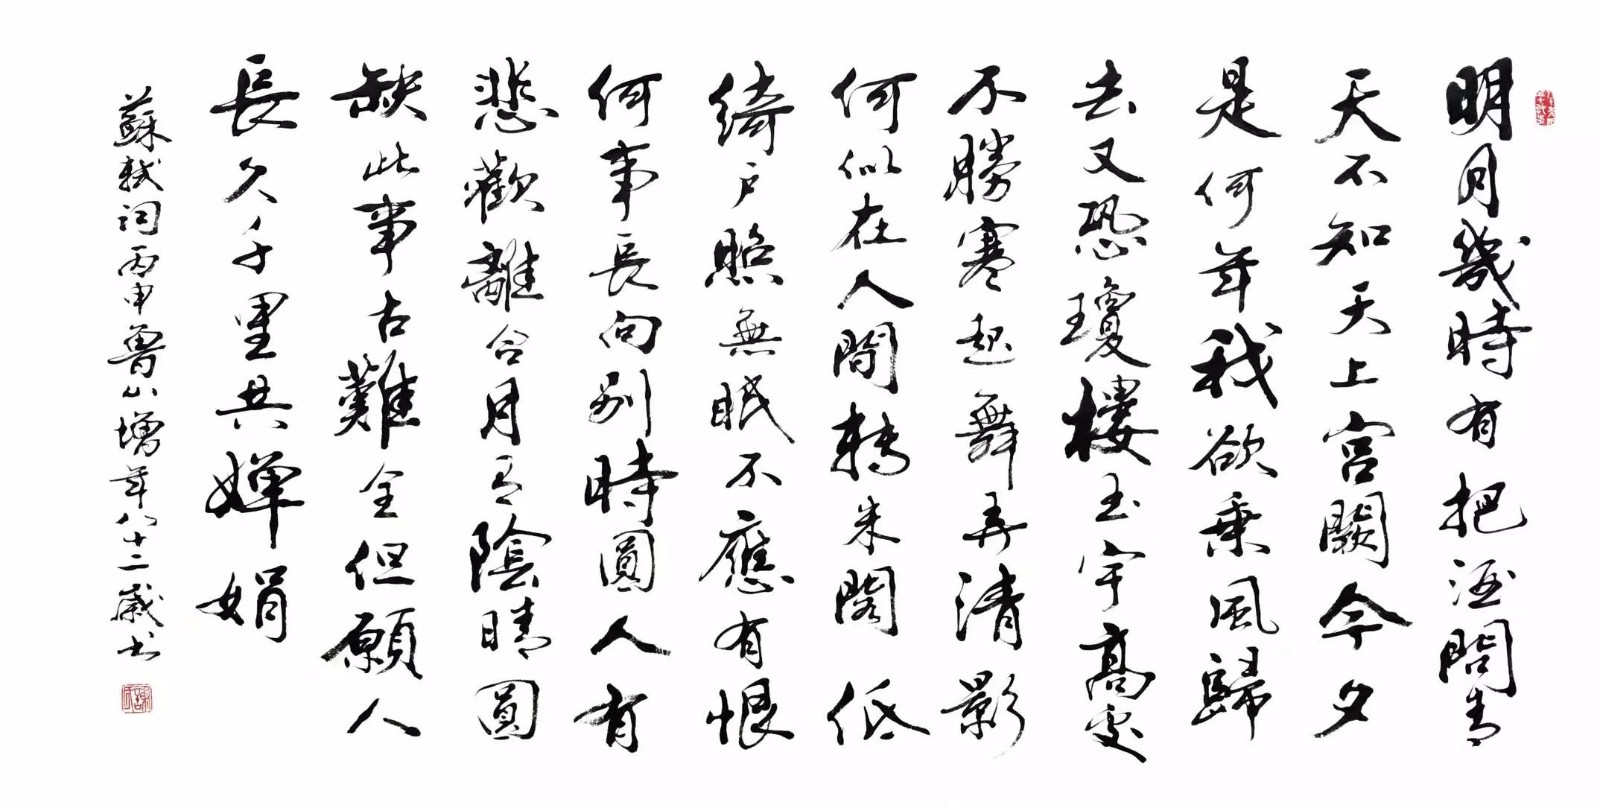 明月幾時有把酒問青
天不知天上宮闕今夕
是何年我欲乘風歸
去又恐瓊樓玉宇高處
不勝寒起舞弄清影
何似在人間轉朱閣低
綺戶照無眠不應有恨
何事長向別時圓人有
悲歡離合月有陰晴圓
缺此事古難全但願人
長久千里共嬋娟
蘇軾詞丙申魯山增年八十二歲書